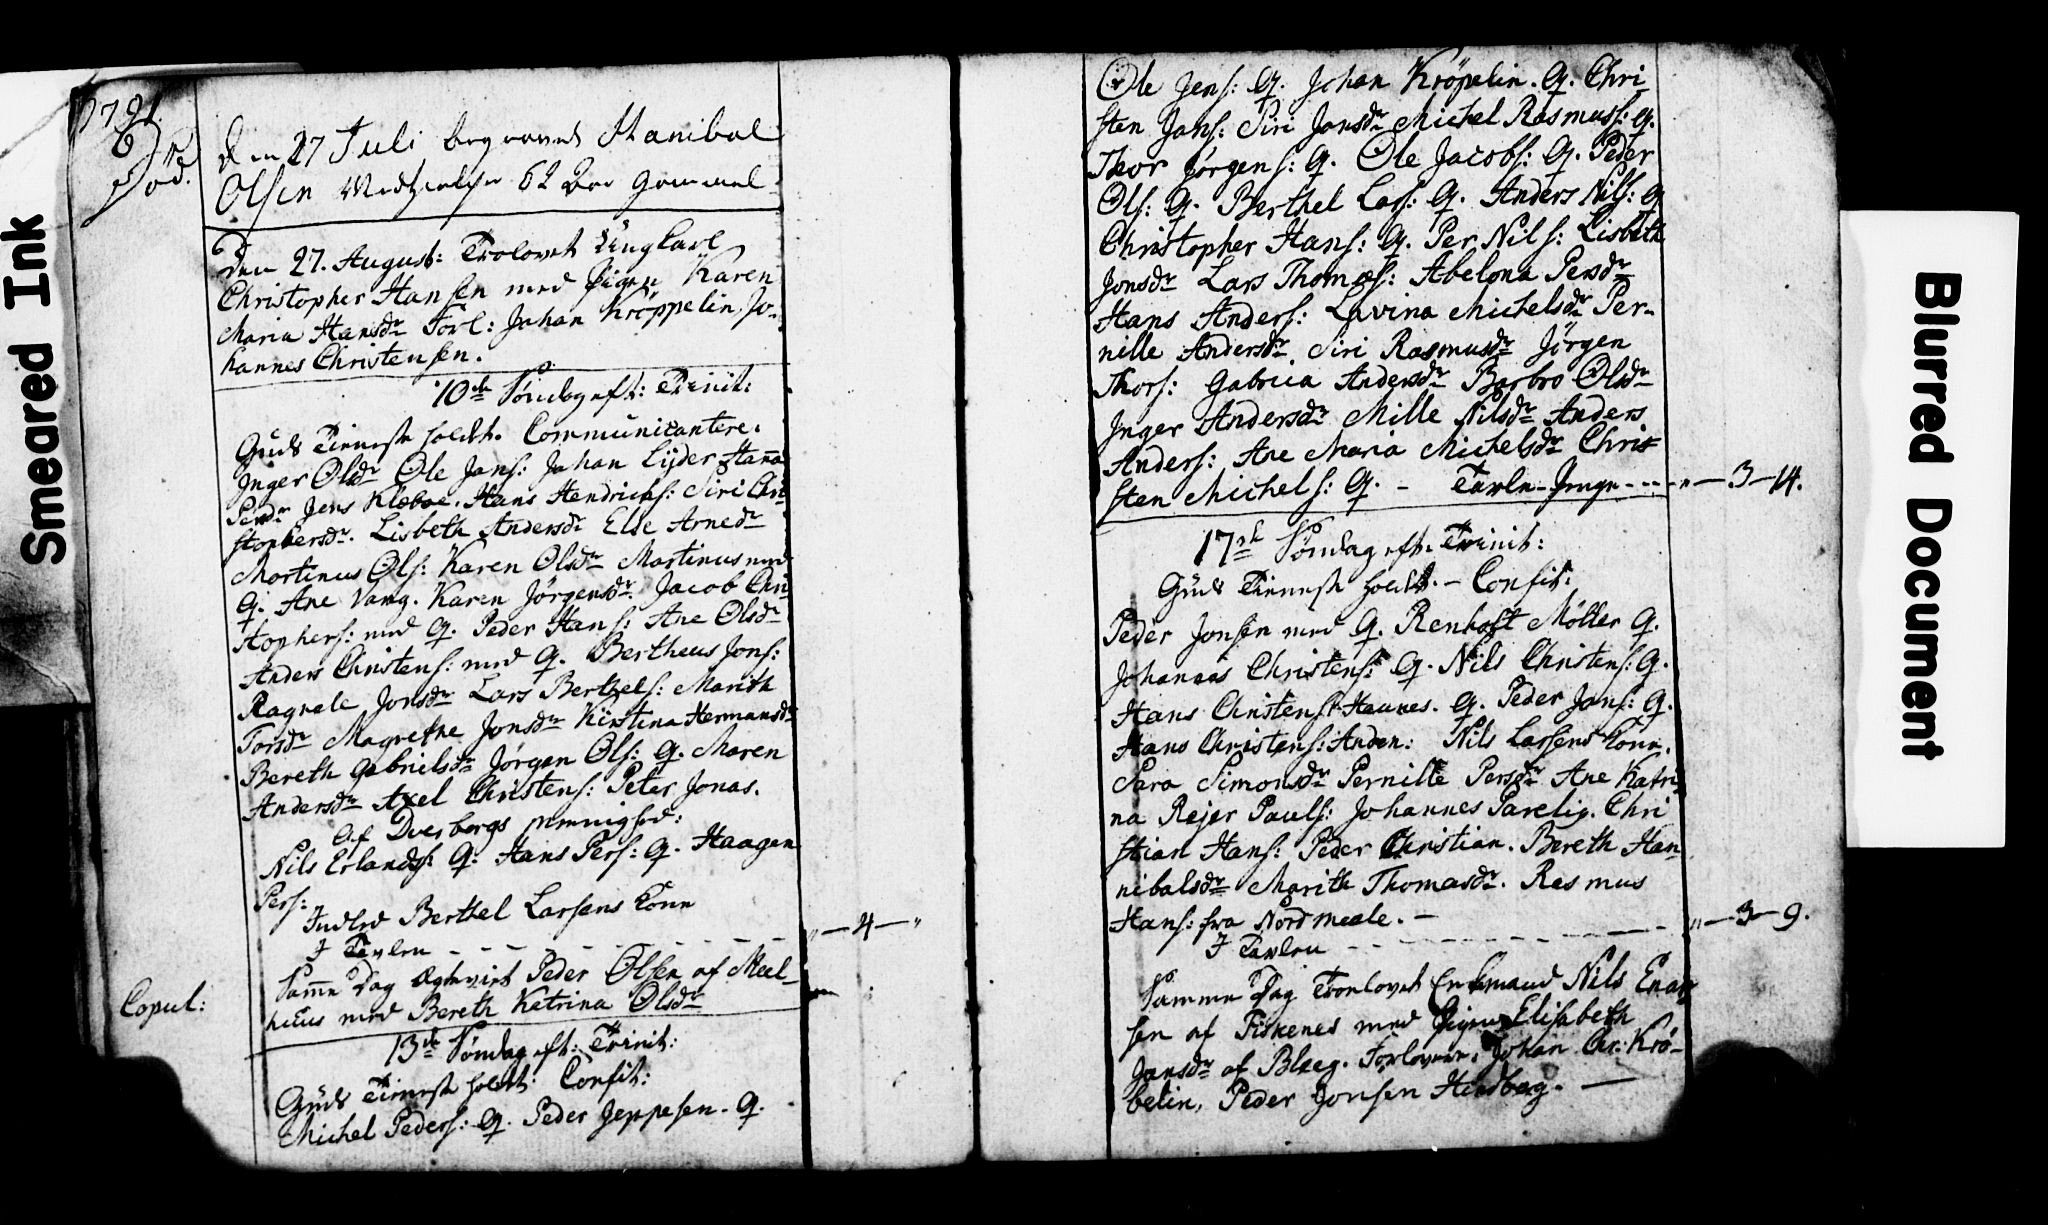 Smeared Ink
1791.
Død.
Den 27 Juli begravet Hanibal
Olsen 62 Aar gammel
Den 27. August: Trolovet Ungkarl
Christopher Hansen med Pigen Karen
Maria Hansdr Forl: Johan Krøppelin, Jo-
hannes Christensen.
10de Søndag eft: Trinit:
Guds Tieneste holdt. Communicantere.
Inger Olsdr Ole Jans: Johan Lyder Hana
Persdr Jens Kleboe. Hans Hendricks: Siri Chri
stophersdr. Lisbeth Andersdr Else Arnedr
Martinus Ols: Karen Olsdr Martinus med
Q. Ane Vang. Karen Jørgensdr. Jacob Chri
stophers: med Q. Peder Hans: Ane Olsdr
Anders Christens: med Q. Bertheus Jons:
Ragnele Jonsdr Lars Berthels: Marith
Torsdr Magrethe Jonsdr Kirstina Hermansdr
Bereth Gabrielsdr Jørgen Ols: Q. Maren
Andersdr Axel Christens: Peter Jonas.
Af Dverbergs menighed:
Nils Erlands: Q: Hans Pers: Q. Haagen
Pers:
Indled Berthel Larsens Kone
I Tavlen - - - - - - - - „ — 4 — „
Samme Dag Egteviet Peder Olsen af Meel-
huus med Bereth Katrina Olsdr
Copul:
13de Søndag eft: Trinit:
Guds Tieneste holdt. Confit:
Michel Peders: Q. Peder Jeppesen. Q.
Ole Jens: Q. Johan Krøpelin. Q. Chri
sten Jans: Siri Jonsdr Michel Rasmuss: Q.
Thor Jørgens: Q. Ole Jacobs: Q. Peder
Ols: Q. Berthel Lars: Q. Anders Nils: Q
Christopher Hans: Q. Per Nils: Lisbeth
Jonsdr Lars Thomæs: Abelona Persdr
Hans Anders: Lavina Michelsdr Per-
nille Andersdr. Siri Rasmusdr Jørgen
Thors: Gabriea Andersdr Barbro Olsdr
Inger Andersdr Mille Nilsdr Anders
Anders: Ane Maria Michelsdr Chri
sten Michels: Q. - Tavle-Penge - - - - „ — 3 — 14.
17de Søndag eft. Trinit:
Guds Tieneste holdt. - Confit:
Peder Jonsen med Q. Renholt Møller Q.
Johannes Christens: Q. Nils Christens: Q.
Hans Christens: Haunes. Q. Peder Jans: Q.
Hans Christens: Anden: Nils Larsens Kone.
Sara Simonsdr Pernille Persdr Ane Katri
na Rejer Pauls: Johannes Parelig. Chri
stian Hans: Peder Christian. Bereth Han
nibalsdr Marith Thomasdr. Rasmus
Hans: fra Nordmeele. —
I Tavlen - - - - - - - - „ — 3 — 9.
Samme Dag Troelovet Enkemand Nils Enar
sen af Fiskenes med Pigen Elisabeth
Jansdr af Bleeg. Forlovere: Johan Chr: Krø-
belin, Peder Jonsen Hendberg. —
Blurred Document